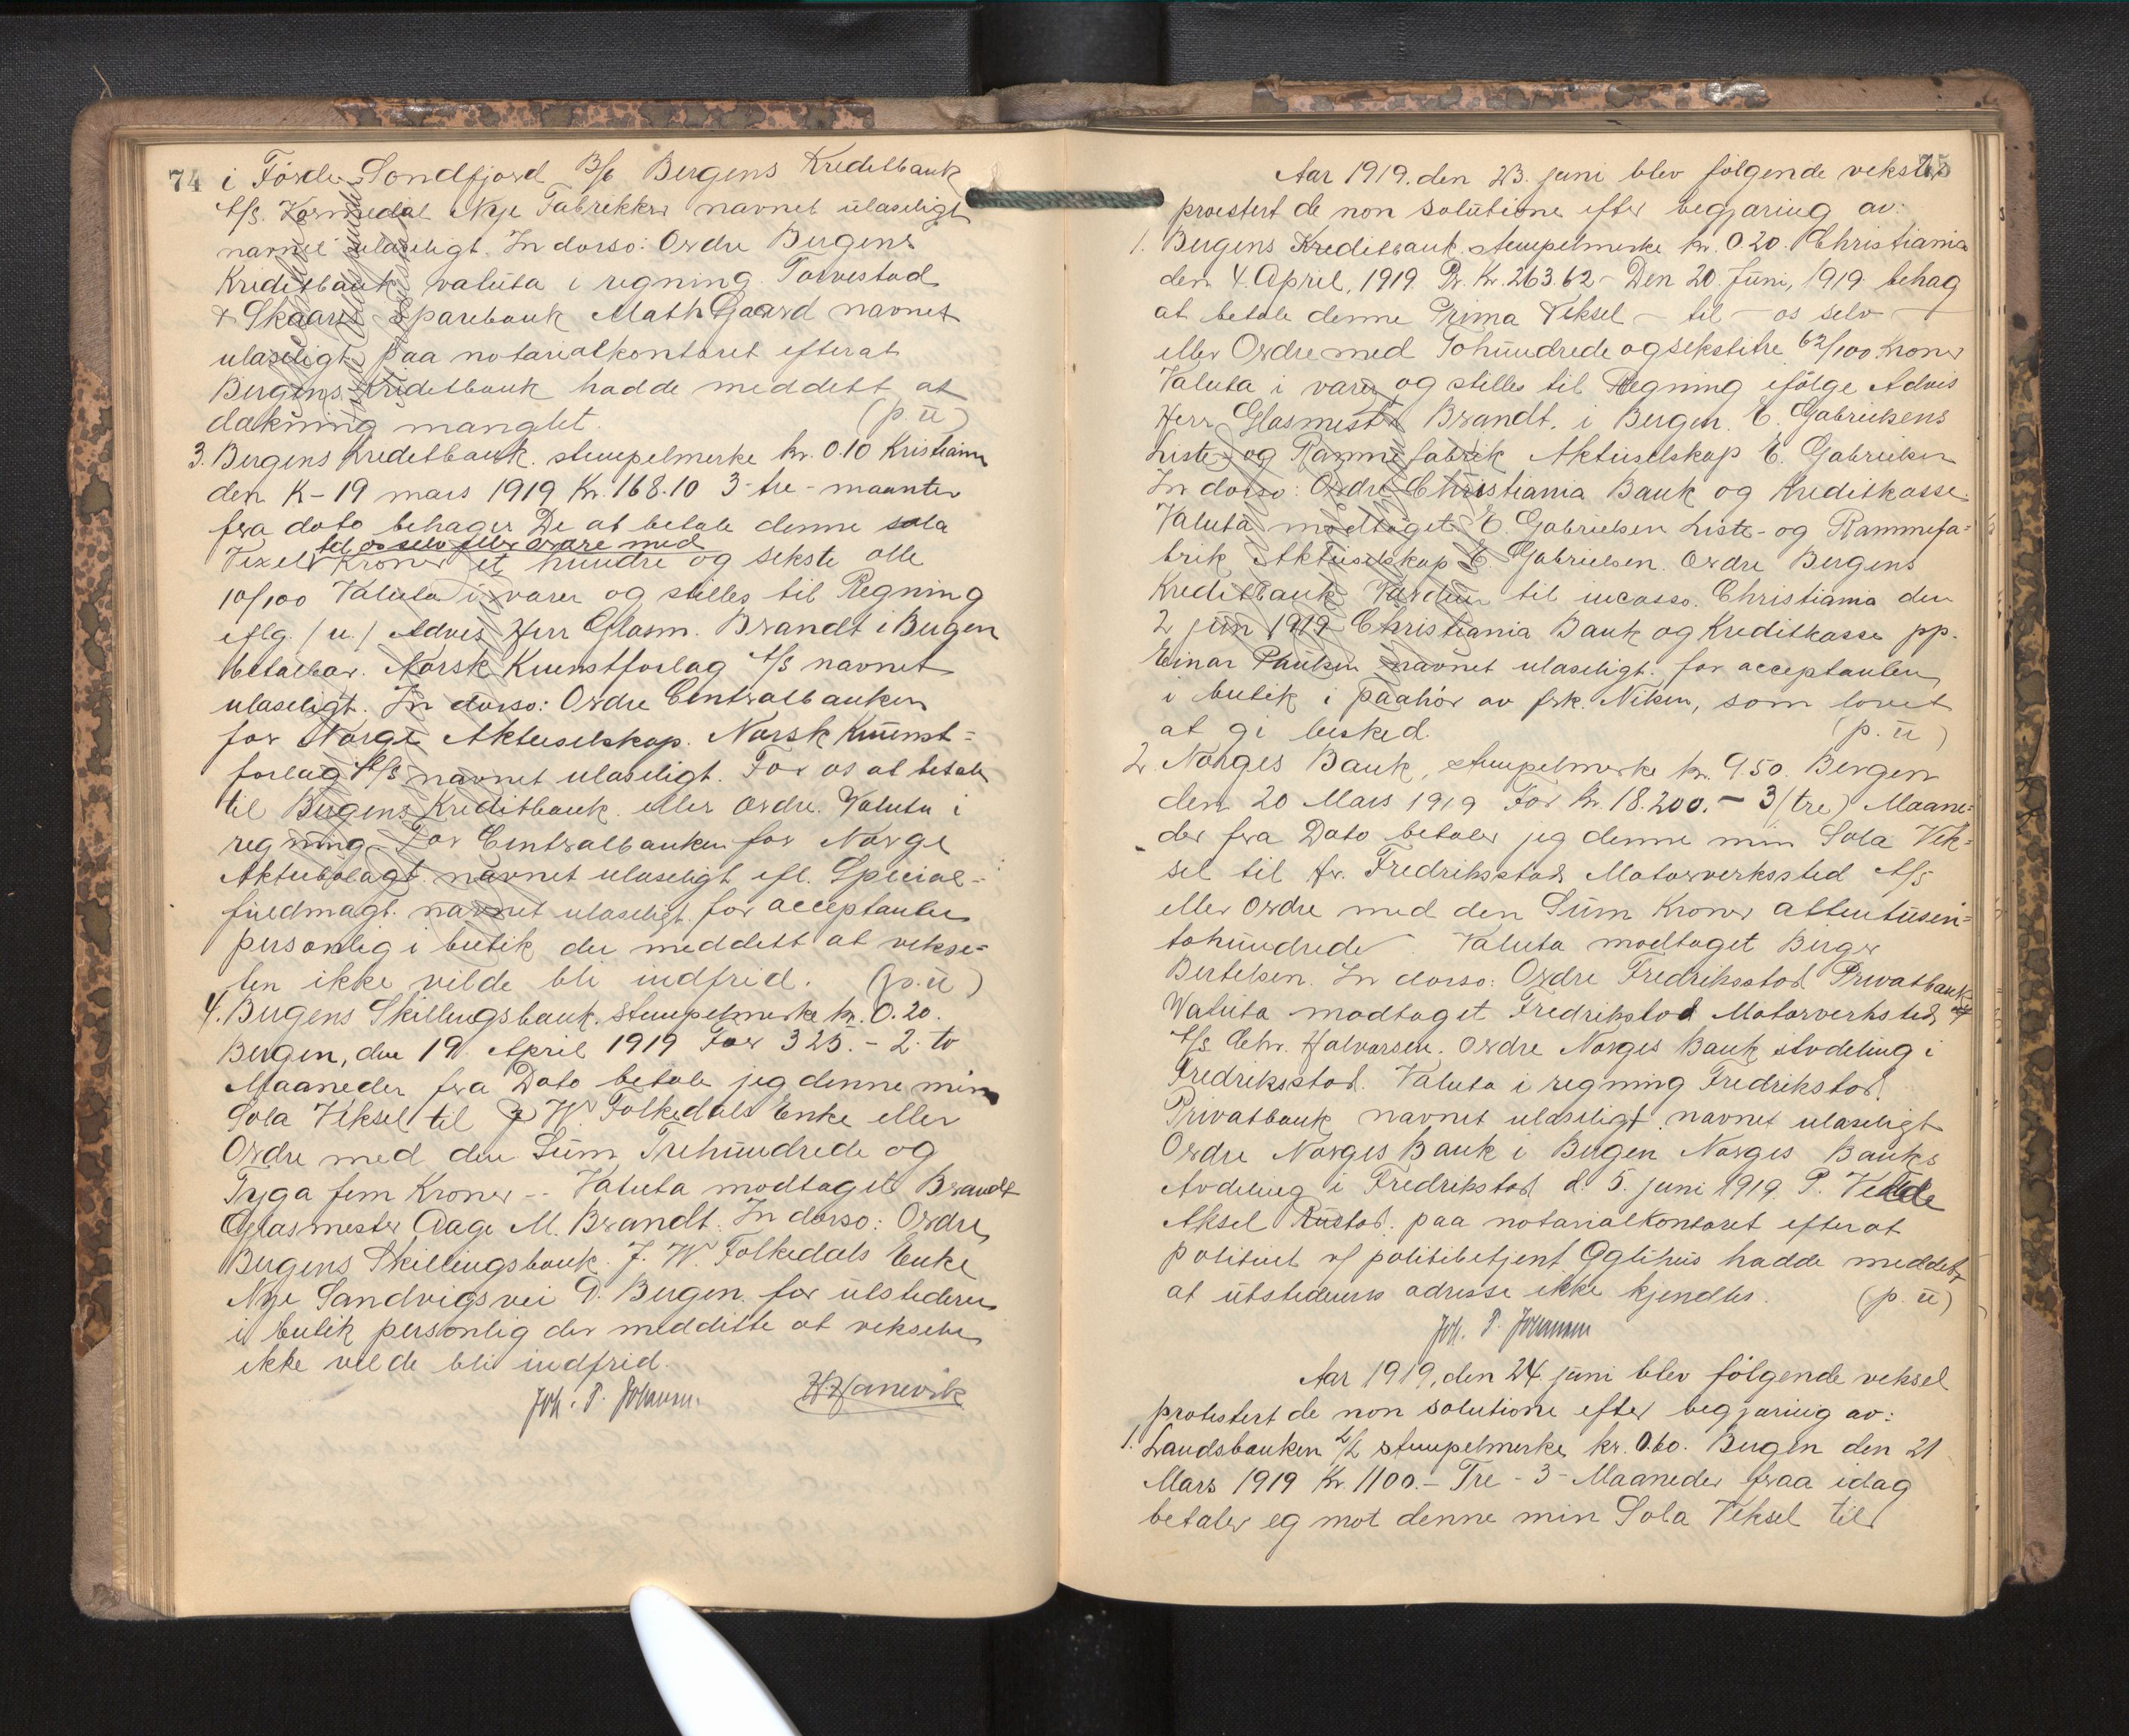 74
i Förde Söndfjord B/6 Bergens Kreditbank
A/S. Kormedal Nye Fabrekker navnet ulæseligt
navnet ulæseligt. In dorso: Ordre Bergens
Kreditbank valuta i regning. Torvestad
& Skaare Sparebank Math Gaard navnet
ulæseligt paa notarialkontoret efterat
Bergens Kreditbank hadde meddelt at
dækning manglet. (p. u)
3. Bergens Kreditbank. stempelmerke kr. 0.10 Kristiania
den K-19 mars 1919 Kr. 168.10 3-tre-maanter
fra dato behager De at betale denne sola
til os selv eller ordre med
Vexel Kroner et hundre og sekste otte
10/100 Valuta i varer og stilles til Regning
iflg. (u.) Advis Herr Glasm. Brandt i Bergen
betalbar. Norsk Kunstforlag A/S navnet
ulæseligt. In dorso: Ordre Centralbanken
for Norge Aktieselskap. Norsk Kunst=
forlag A/S navnet ulæseligt. For os at betale
til Bergens Kreditbank eller ordre. Valuta i
regning For Centralbanken for Norge
Aktiebolagt navnet ulæseligt efl. Special-
fuldmagt. navnet ulæseligt. for acceptanten
personlig i butik der meddelt at vekse=
len ikke vilde bli indfrid. (p. u)
4. Bergens Skillingsbank. stempelmerke kr. 0.20.
Bergen, den 19. April 1919 For 325.- 2. to
Maaneder fra Dato betale jeg denne min
Sola Veksel til J W. Folkedals Enke eller
Ordre med den Sum Trehundrede og
Tyga fem Kroner -- Valuta modtaget Brandt
Glasmester Aage M. Brandt. In dorso: Ordre
Bergens Skillingsbank. J. W. Folkedals Enke
Nye Sandvigsvei 9. Bergen. for utstederen
i butik personlig der meddelte at vekselen
ikke vilde bli indfrid.
Joh. P. Johannsen. Hanevik
75
Aar 1919. den 23. juni blev følgende veksler
proestert de non solutione efter begjæring av:
1. Bergens Kreditbank stempelmerke kr. 0.20. Christiania
den 4 April, 1919 Pr. Kr. 263.62 - Den 20. Juni, 1919 behag
at betale denne Prima Veksel - til - os selv -
eller Ordre med Tohundrede og sekstitre 62/100 Kroner
Valuta i varer og stilles til Regning ifølge Advis
Herr Glasmester Brandt. i Bergen. E. Gabrielsens
Liste- og Rammefabrik Aktieselskap E. Gabrielsen
In dorso: Ordre Christiania Bank og Kreditkasse.
Valuta modtaget E. Gabrielsen Liste- og Rammefa=
brik Aktieselskap E. Gabrielsen. Ordre Bergens
Kreditbank Værdien til incasso. Christiania den
2 juni 1919 Christiania Bank og Kreditkasse pp.
Einar Paulsen navnet ulæseligt. for acceptanten
i butik i paahør av frk. Nilsen, som lovet
at gi besked. (p. u)
2 Norges Bank, stempelmerke kr. 9.50. Bergen
den 20 Mars 1919 For kr. 18.200.- 3/tre) Maane=
der fra Dato betaler jeg denne min Sola Vek=
sel til hr. Fredriksstad Motorverksted A/S
eller ordre med den Sum Kroner attentusen-
tohundrede Valuta modtaget Birger
Bertelsen. In dorso: Ordre Fredriksstad Privatbank
Valuta modtaget Fredrikstad Motorverksted
A/S Chr. Halvorsen. Ordre Norges Bank Avdeling i
Fredriksstad. Valuta i regning Fredrikstad
Privatbank navnet ulæseligt navnet ulæseligt
Ordre Norges Bank i Bergen Norges Banks
Avdeling i Fredrikstad d. 5. juni 1919 P.
Aksel Rustad. paa notarialkontoret efter at
politiet v/ politibetjent Oglihus hadde meddelt
at utstederens adresse ikke kjendtes. (p. u)
Joh. P. Johannsen
Aar 1919, den 24. juni blev følgende veksel
protestert de non solutione efter begjæring av:
1. Landsbanken A/L stempelmerke kr. 0.60. Bergen den 21
Mars 1919 Kr. 1100.- Tre - 3 - Maaneder fraa idag
betaler eg mot denne min Sola Veksel til